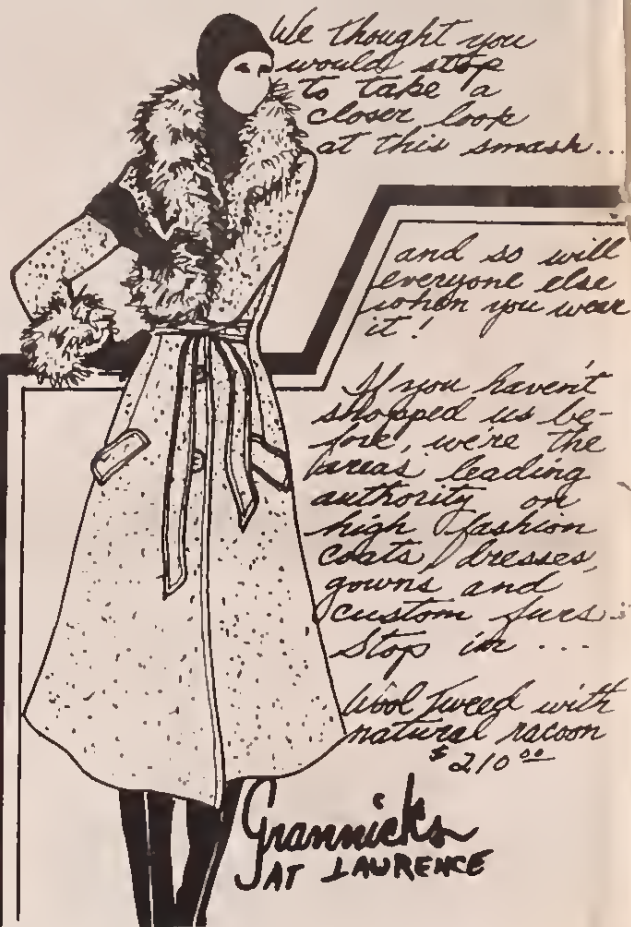 We thought you
would stop
to take a
closer look
at this smash...
and so will
everyone else
when you wear
it!
If you haven't
shopped us be-
fore, we're the
areas leading
authority on
high fashion
coats, dresses,
gowns and
custom furs.
Stop in ...
Wool Tweed with
natural racoon
$210.00
Grannicks
AT LAURENCE